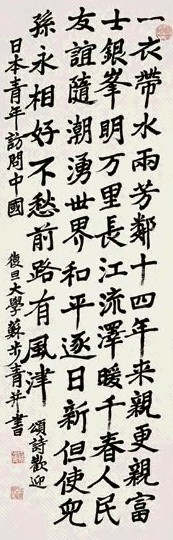 一衣帶水兩芳鄰十四年来親更親富
士銀峯明万里長江流澤暖千春人民
友誼隨潮湧世界和平逐日新但使兒
孫永相好不愁前路有風津 頌詩歡迎
日本青年訪問中國 復旦大學蘇步青并書